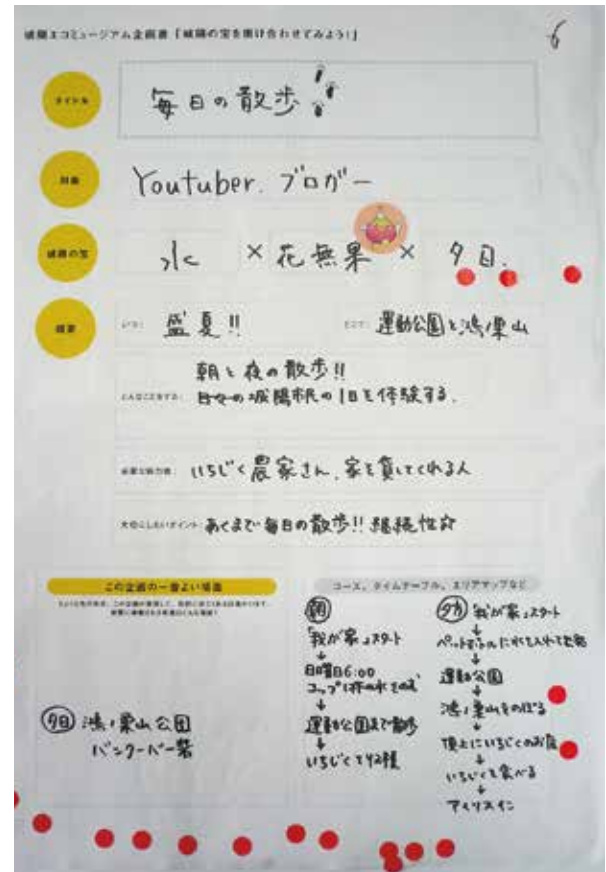 城陽エコミュージアム企画書「城陽の宝を掛け合わせてみよう!」
6
タイトル
毎日の散歩!!
対象
Youtuber. ブロガー
城陽の宝
水 × 花無果 × 夕日.
概要
いつ: 盛夏!! どこで: 運動公園と鴻ノ巣山
朝と夜の散歩!!
どんなことをする: の城陽市民の1日を体験する.
必要な協力者: いちじく農家さん、家を貸してくれる人
大切にしたいポイント: あくまで毎日の散歩!! 継続性
この企画の一番よい場面
夕日 鴻ノ巣山公園
バンクーバー
コース、タイムテーブル、エリアマップなど
朝
「我が家」スタート
↓
日曜日6:00
コップ1杯の水をのむ
↓
運動公園まで散歩
↓
いちじくを
夕方 「我が家」スタート
↓
ペットボトルに水を入れて
↓
運動公園
↓
鴻ノ巣山をのぼる
↓
頂上にいちじくのお店
↓
いちじくを食べる
↓
アイリスイン